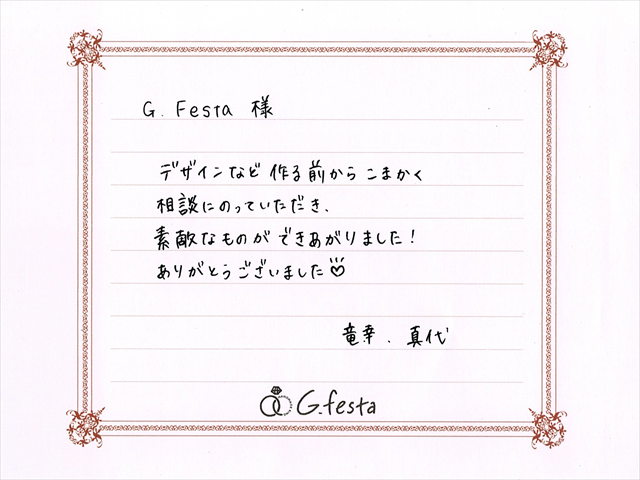 G. Festa 様
デザインなど 作る前から こまかく
相談にのっていただき、
素敵なものが できあがりました！
ありがとうございました♡
竜幸、真代
G.festa